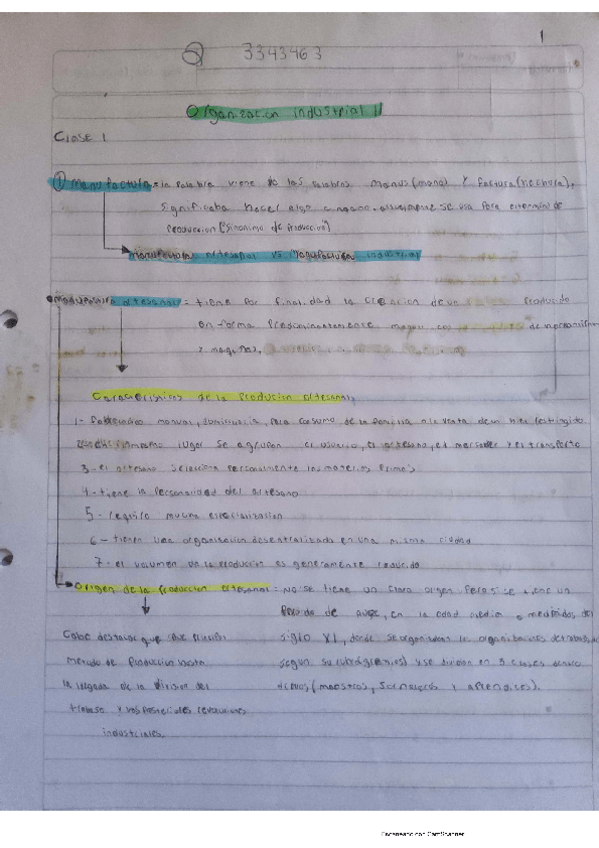 1
3343463
Organización industrial II
Clase 1
① Manufactura = la palabra viene de las palabras manus (mano) y factura (hechura),
significaba hacer algo a mano. actualmente se usa para el termino de
Produccion (sinonimo de Produccion)
Manufactura artesanal vs Manufactura industrial
Manufactura artesanal = tiene por finalidad la creacion de un Producto
en forma Predominantemente manual con de herramientas
y maquinas,
Caracteristicas de la Produccion artesanal
1- manual, para consumo de la familia o la venta de un bien
mismo lugar se agrupan el usuario, el artesano, el mercader y el transporte
3- el artesano selecciona Personalmente las materias Primas
4- tiene la Personalidad del artesano
5- requiere mucha especializacion
6- tienen una organizacion descentralizada en una misma ciudad
7- el volumen de la Produccion es generalmente reducido
Origen de la Produccion artesanal = No se tiene un claro origen Pero si se tiene un
Periodo de auge, en la edad media a mediados del
Cabe destacar que fue siglo XI, donde se organizaban
metodo de Produccion hasta segun su rubro (gremios) y se dividian en 3 clases dentro
la llegada de la division del de ellos (maestros, y aprendices).
trabajo y las revoluciones
industriales.
Escaneado con CamScanner